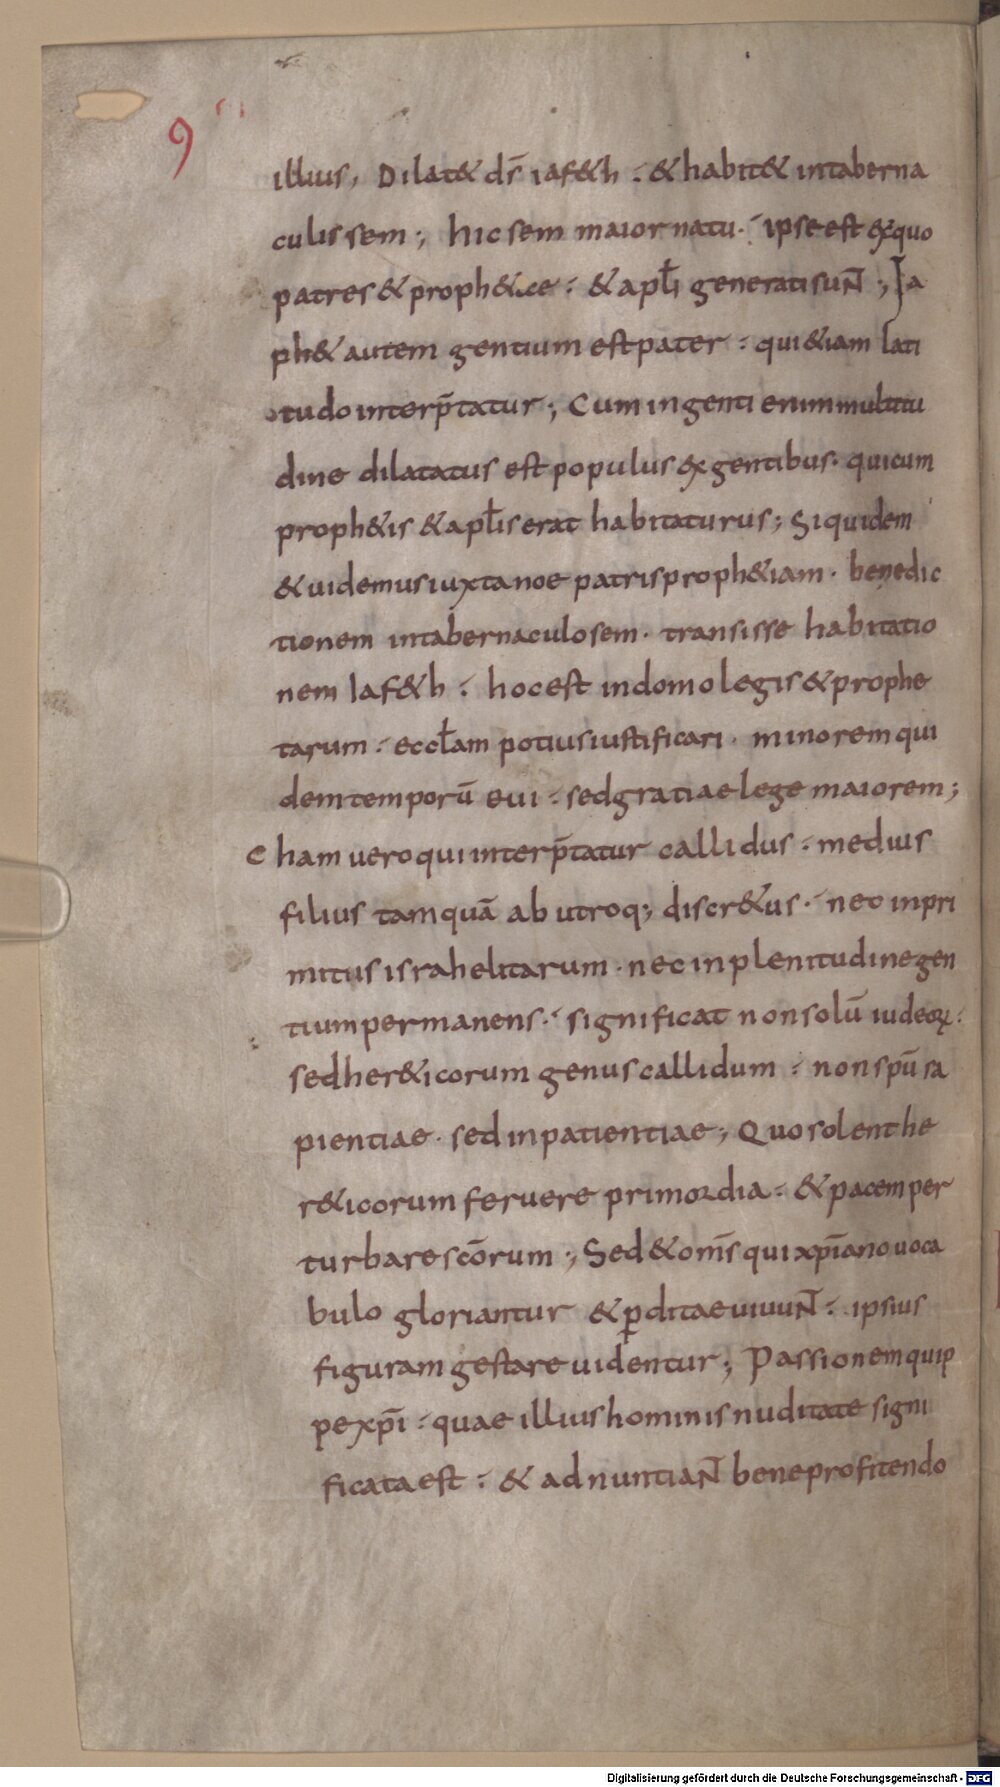 9
illius, Dilat& ds̄ iaf&h : & habit& intaberna
culis sem ; hic sem maior natu · ipse est exquo
patres & proph&ae : & apłi generati suN̄ ; Ia
ph& autem gentium est pater : qui &iam lati
tudo interp̄tatur ; Cum ingenti enim multitu
dine dilatatus est populus ex gentibus · qui cum
proph&is & apłis erat habitaturus ; Siquidem
& uidemus iuxta noe patris proph&iam · benedic
tionem intabernaculo sem · transisse habitatio
nem Iaf&h : hoc est in domo legis & prophe
tarum : eccłam potius iustificari · minorem qui
dem temporū eui : sed gratiae lege maiorem ;
Cham uero qui interp̄tatur callidus : medius
filius tamquā ab utroq; discr&us : nec in pri
mitus israhelitarum · nec in plenitudine gen
tium permanens : significat non solū iudeoꝝ :
sed her&icorum genus callidum : non spū sa
pientiae · sed inpatientiae ; Quo solent he
r&icorum feruere primordia : & pacem per
turbare scōrum ; Sed & om̄s qui xp̄iano uoca
bulo gloriantur & ꝑditae uiuuN̄ : ipsius
figuram gestare uidentur ; Passionem quip
pe xp̄i : quae illius hominis nuditate signi
ficata est : & adnuntiaN̄ bene profitendo
Digitalisierung gefördert durch die Deutsche Forschungsgemeinschaft - DFG